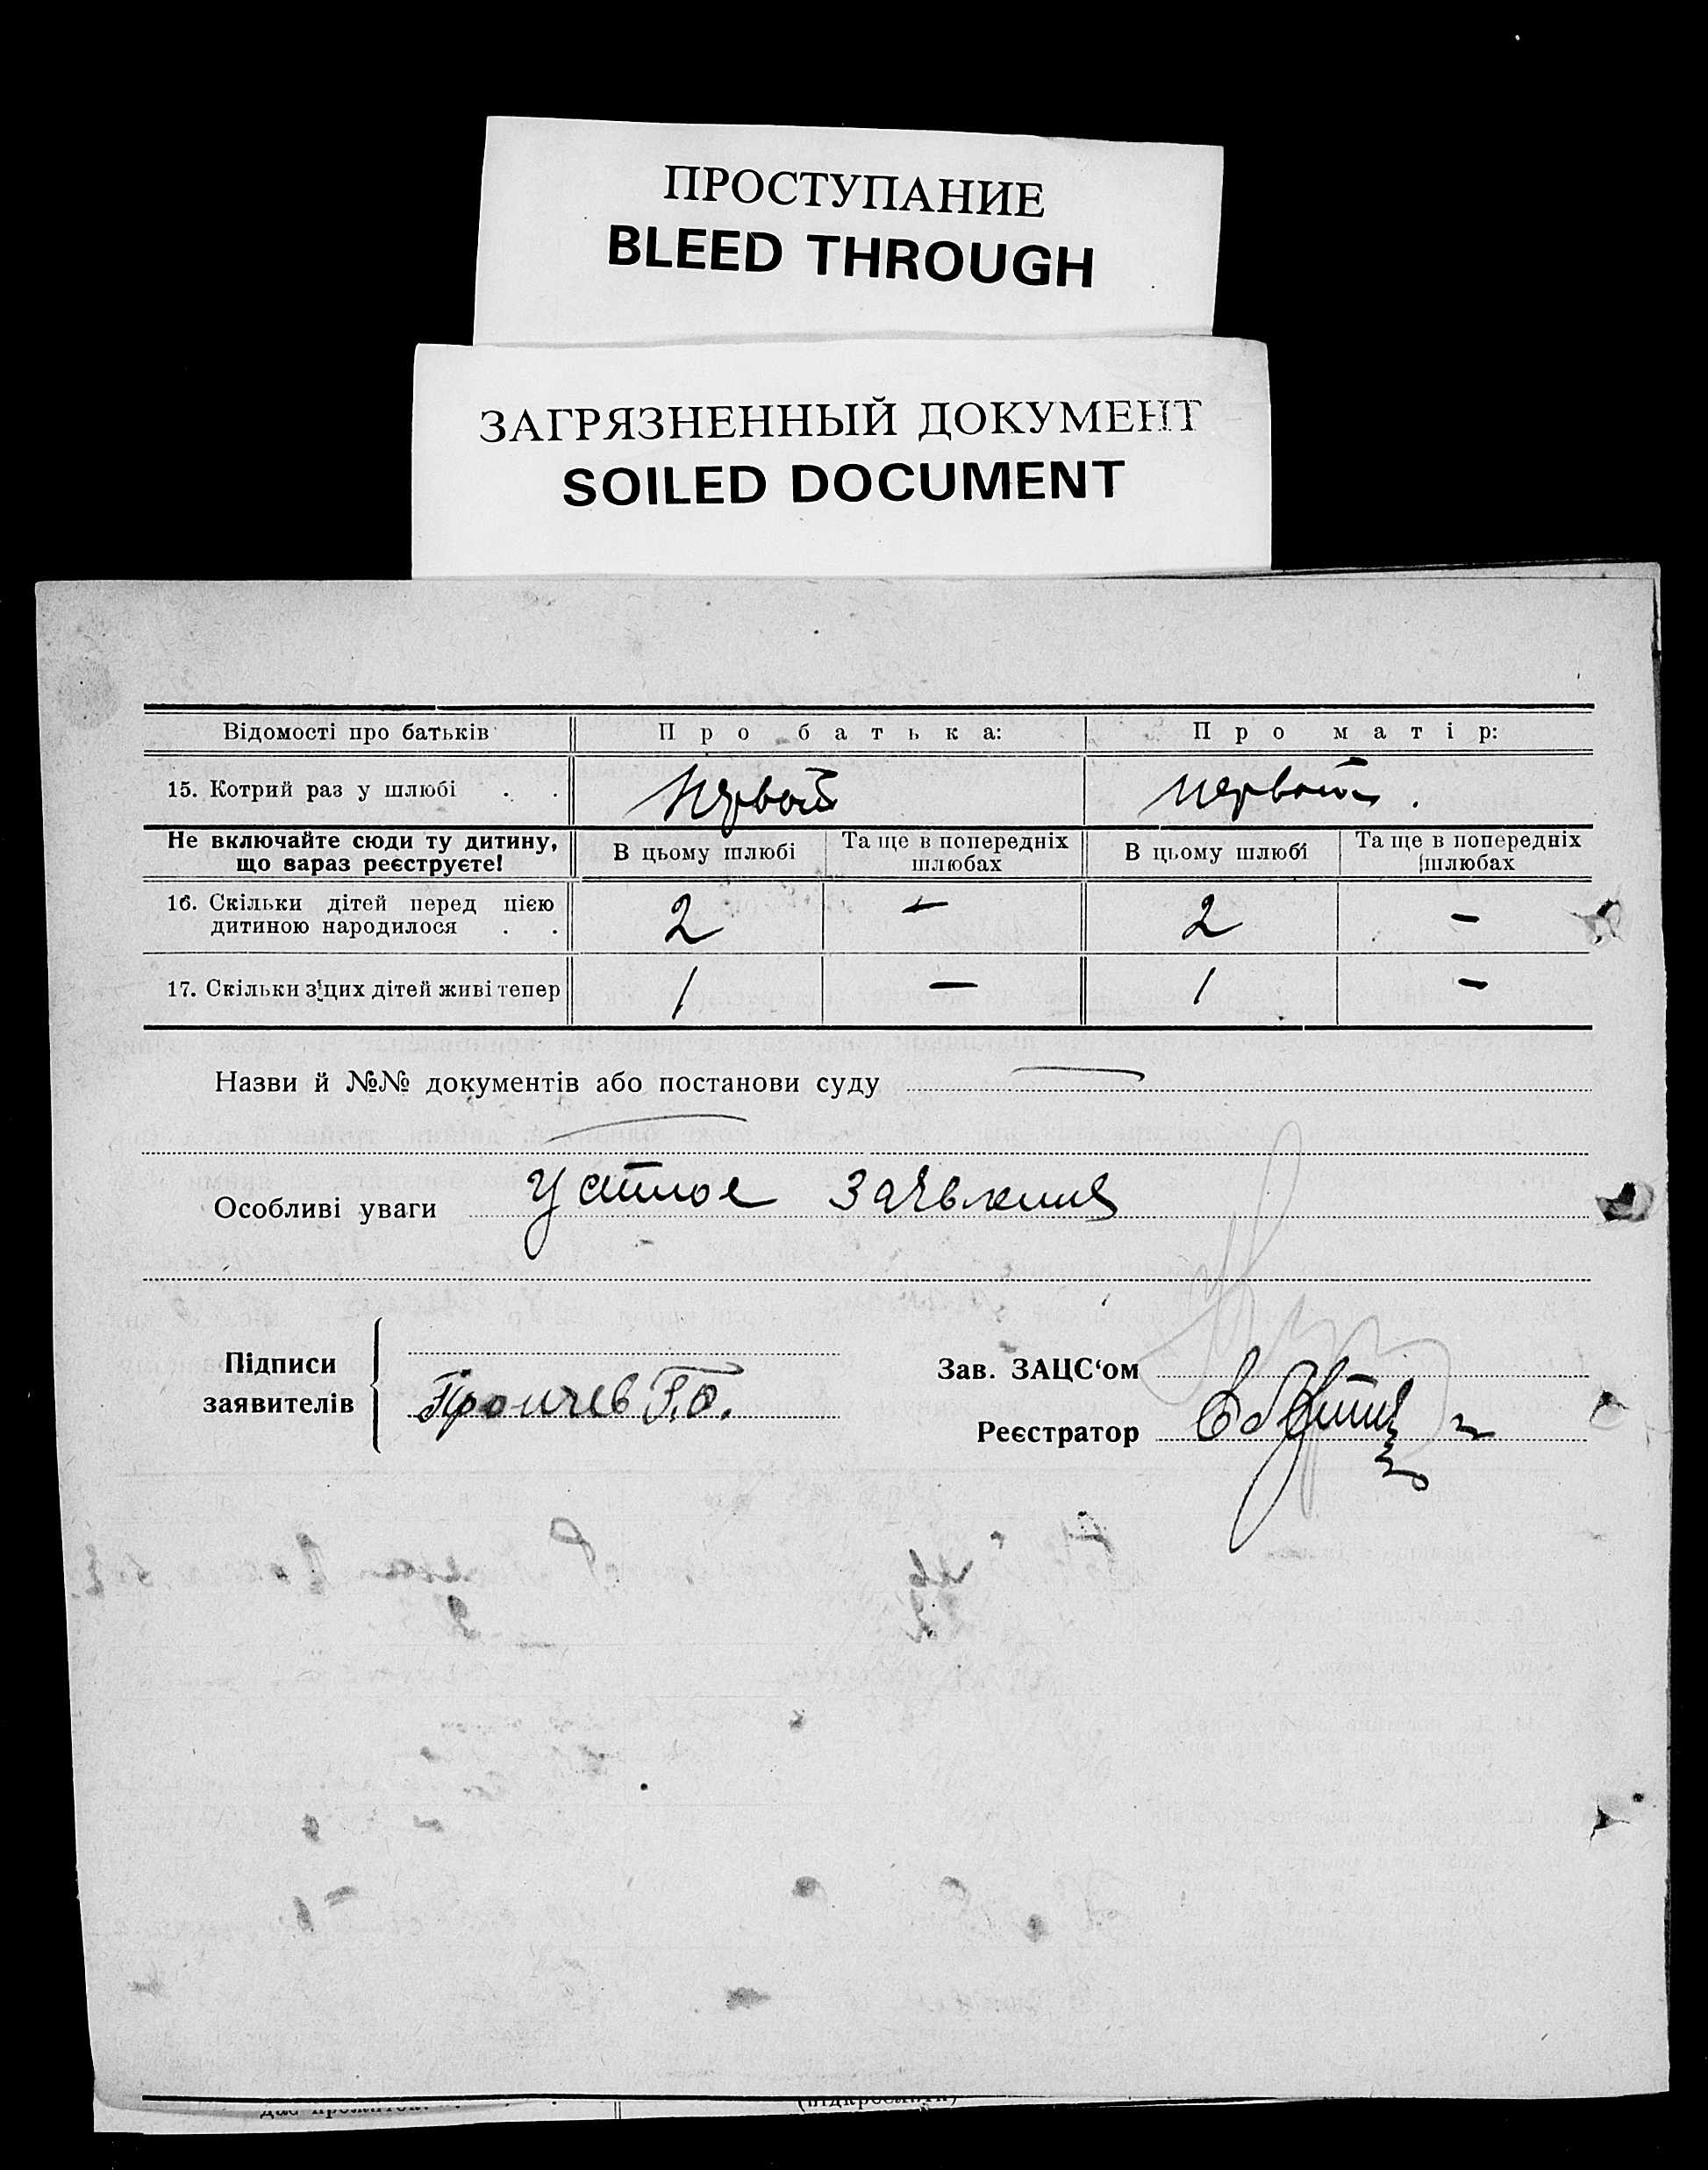 ПРОСТУПАНИЕ
BLEED THROUGH
ЗАГРЯЗНЕННЫЙ ДОКУМЕНТ
SOILED DOCUMENT
Відомості про батьків Про батька: Про матір:
15. Котрий раз у шлюбі . . первый первый.
Не включайте сюди ту дитину, що вараз реєструєте! В цьому шлюбі Та ще в попередніх шлюбах В цьому шлюбі Та ще в попередніх шлюбах
16. Скільки дітей перед цією
дитиною народилося . . 2 — 2 —
17. Скільки з цих дітей живі тепер 1 — 1 —
Назви й №№ документів або постанови суду —
Особливі уваги Устное заявление
Підписи
заявителів
Зав. ЗАЦС‘ом
Реєстратор
(підкреслити)